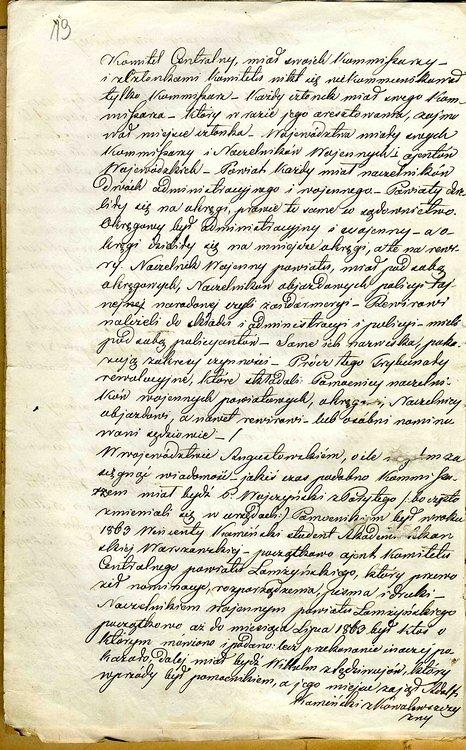 19
Komitet Centralny, miał swoich Kommissarzy –
i z członkami Komitetu nikt się nie kommunikował
tylko Kommissarz – Każdy członek miał swego Kom-
missarza – który w razie jego aresztowania, zajmo
wał miejsce członka – Województwa miały swoich
Kommissarzy i Naczelników Wojennych i ajentów
Wojewódzkich – Powiat każdy miał naczelników
dwóch administracyjnego i wojennego – Powiaty dzie
liły się na okręgi, prawie te same co sądownictwo.
Okręgowy był administracyjny i wojenny – a o-
kręgi dzieliły się na mniejsze okręgi, a te na rewi
ry. Naczelnik Wojenny powiatu, miał pod sobą
okręgowych, Naczelników objazdowych policyi taj-
nej narodowej czyli żandarmeryi – Rewirowi
należeli do składu i administracyi i policyi – mieli
pod sobą policyantów – Same ich nazwiska, poka-
zują zakresy czynności – Prócz tego Trybunały
rewolucyjne, które składali Pomocnicy naczelni-
ków wojennych powiatowych, okręgowi, Naczelnicy
objazdowi, a nawet rewirowi – lub osobni nomino
wani sędziowie – /
W województwie Augustowskiem, o ile za
sięgnąć wiadomość – jakiś czas podobno Kommissa-
rzem miał bydź b. Wojczyński z /bo często
zmieniali się w urzędach/ Pomocnikiem był w roku
1863 Wincenty Kamiński student Akademii
skiej Warszawskiej – początkowo ajent Komitetu
Centralnego powiatu Łomżyńskiego, który przewo
ził nominacye, rozporządzenia, pisma i druki –
Naczelnikiem wojennym powiatu Łomżyńskiego
początkowo aż do miesiąca Lipca 1863 był ktoś o
którym mówiono i podano lecz przekonanie inaczej po-
kazało, Dalej miał bydź Wilhelm z który
wprzódy był pomocnikiem, a jego miejsce zajął Adolf
Kamiński z Kowalewszczy
zny